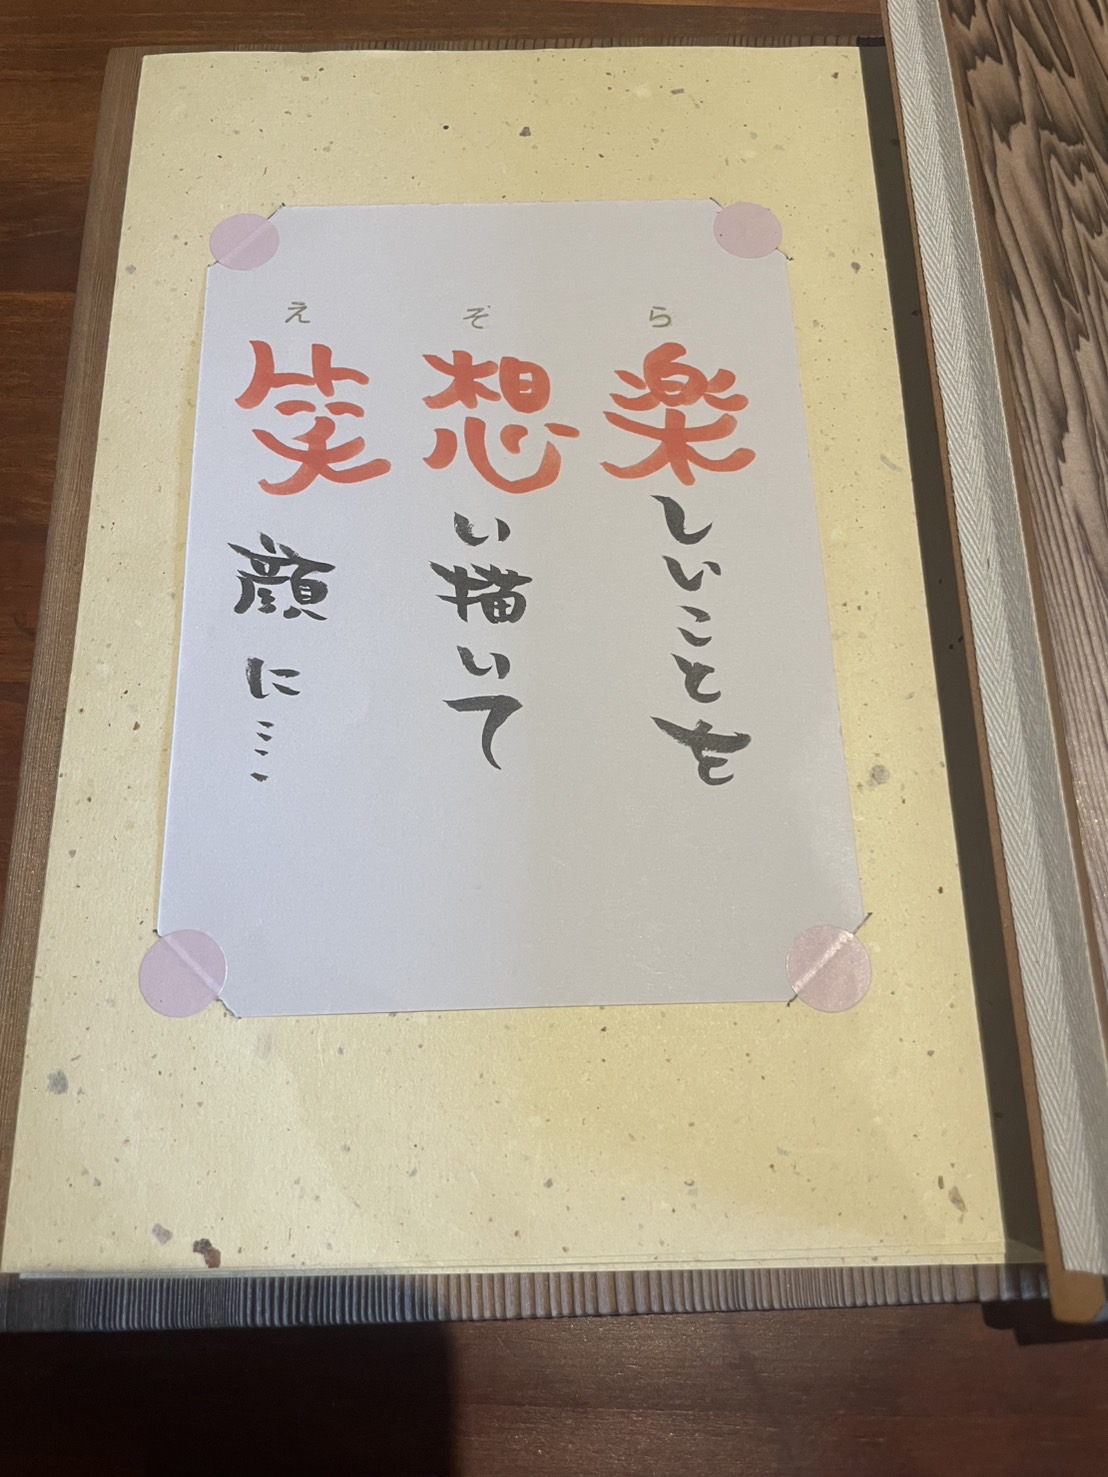 ら
楽しいことを
ぞ
想い描いて
え
笑顔に…